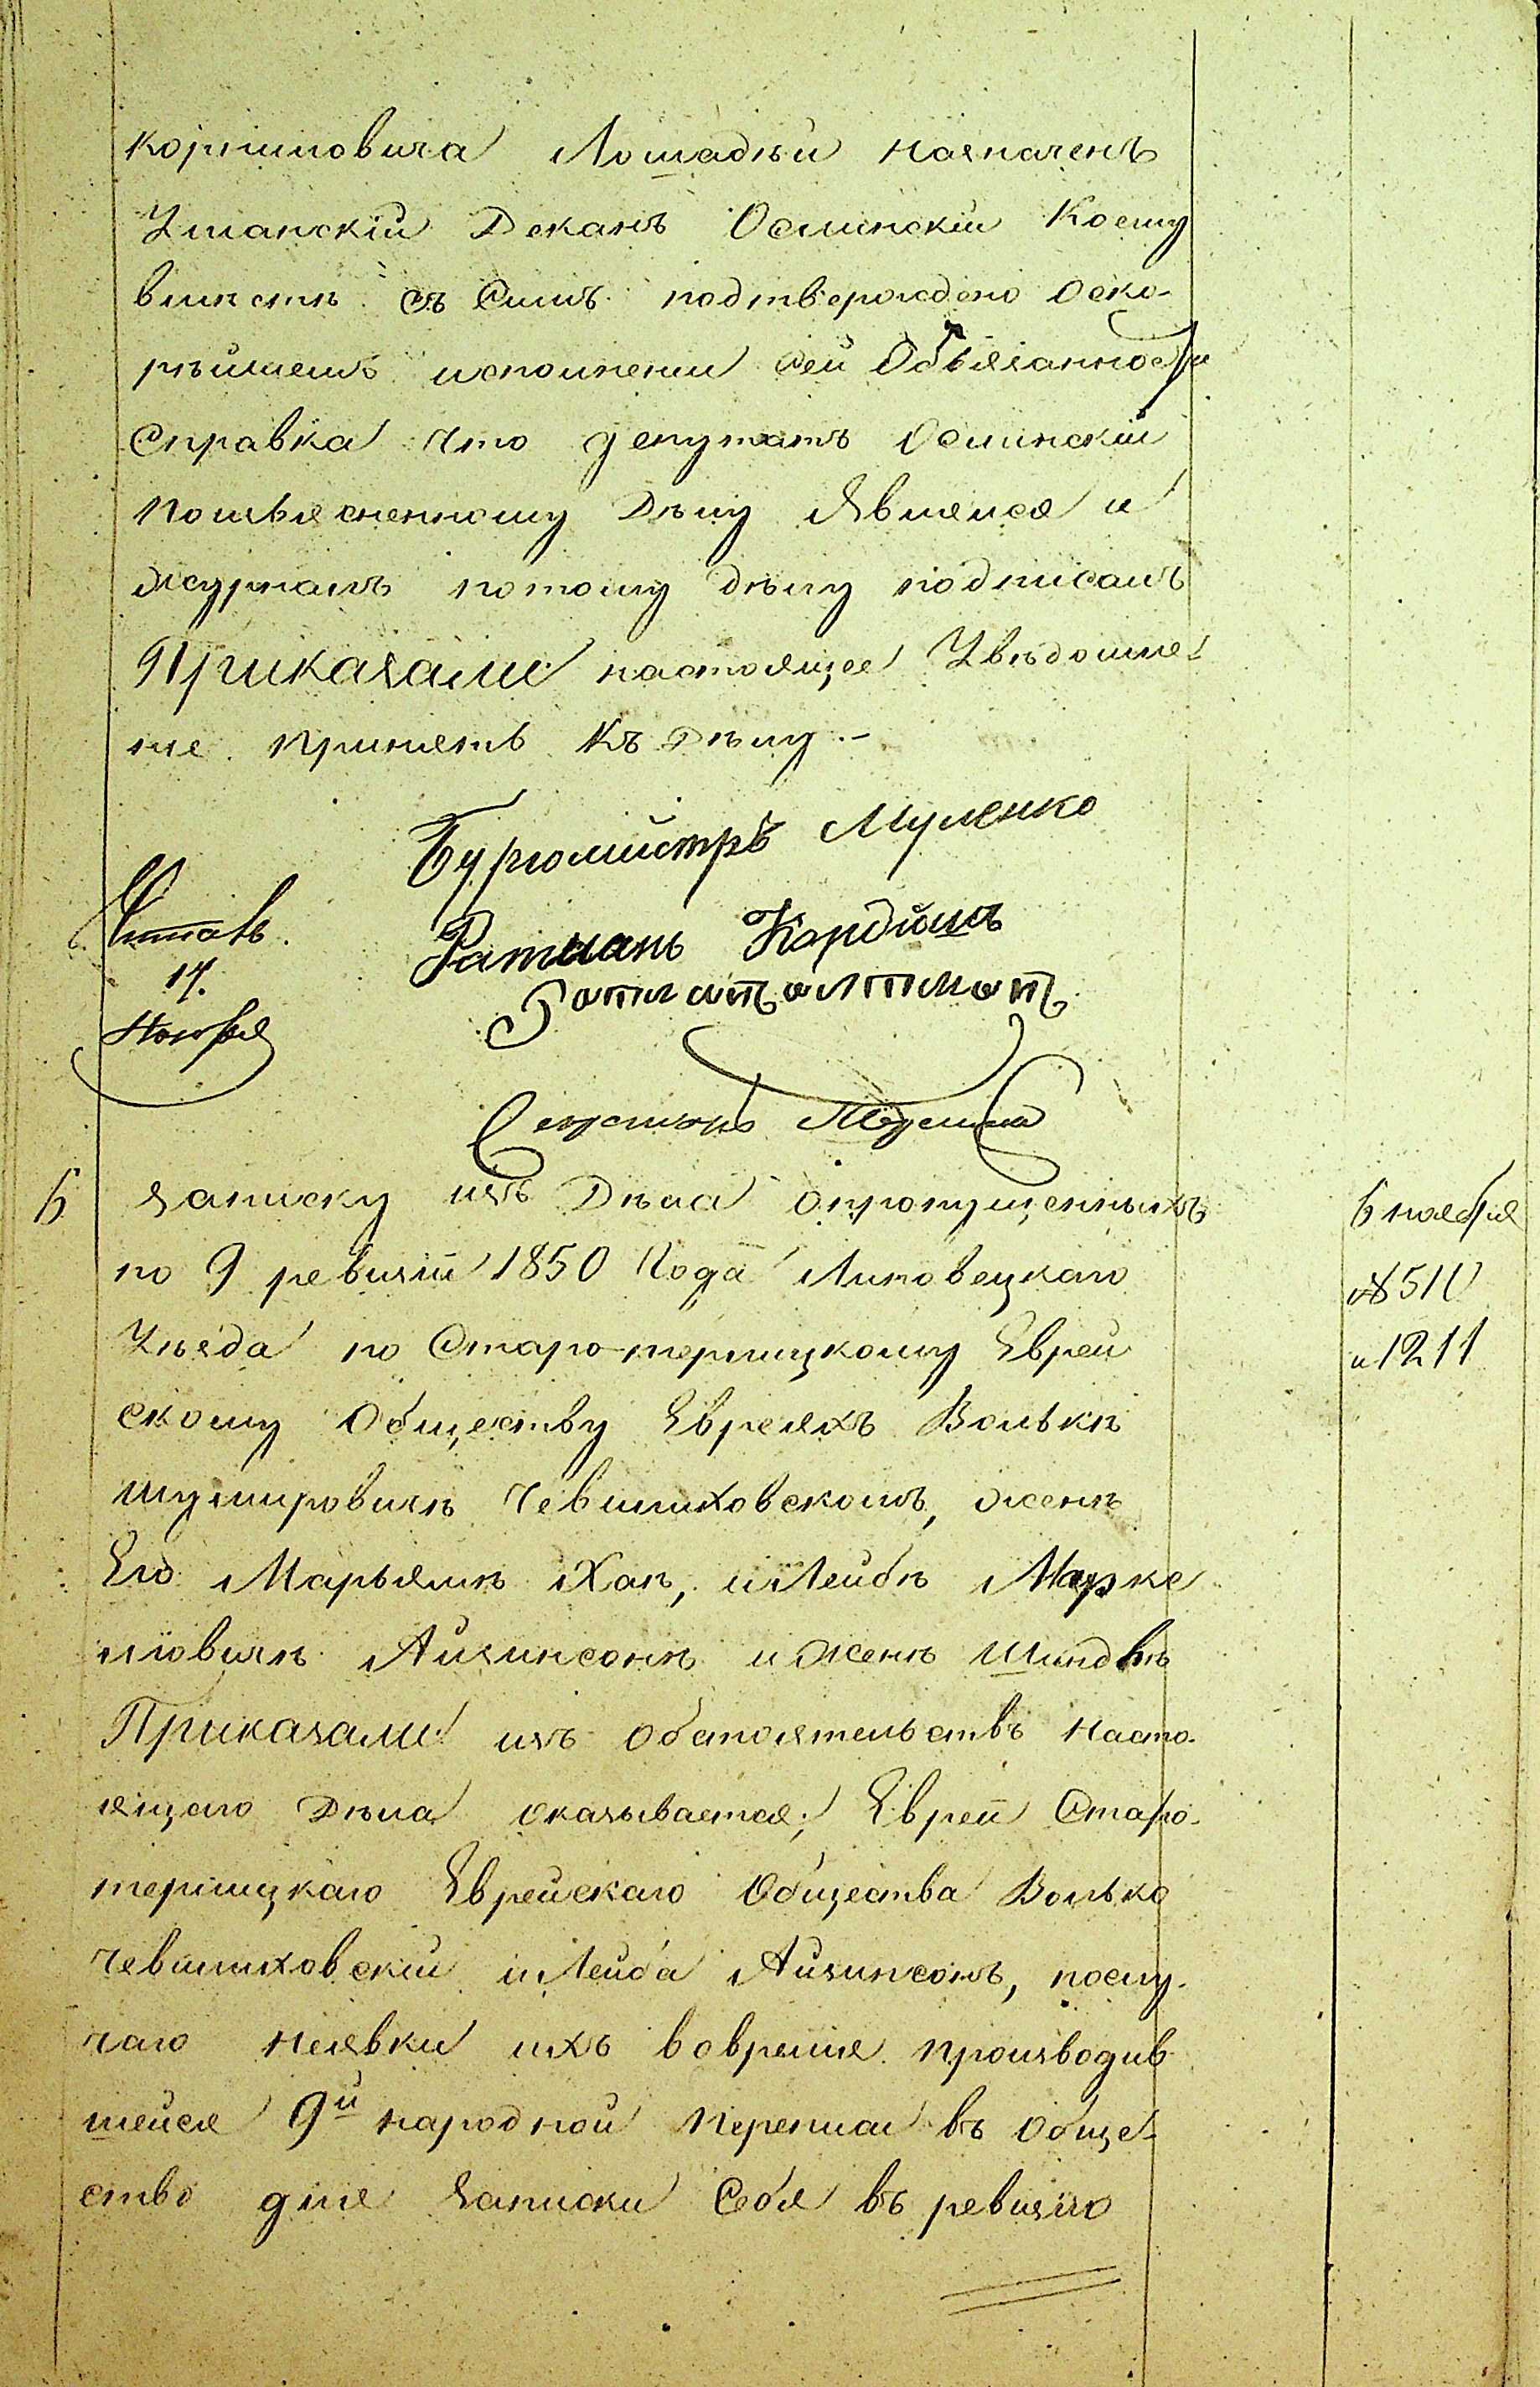 Лошадьи назначенъ
Уманскій Деканъ Осминскій Коему
вмѣстѣ съ Симъ подтверждено оско-
рѣйшемъ исполненіи сей Объязанности
Справка что депутатъ Осминскій
повъясненному Дѣлу Явился и
журналъ потому дѣлу подписалъ
Приказали настоящее Увѣдомле-
ніе принять Къ Дѣлу.-
Бургомистръ
Ратманъ
Читалъ
17.
Ноября
6 записку изъ Дѣла опропущенныхъ 6 ноября
по 9 ревизіи 1850 Года Липовецкаго № 510
Уѣзда по Старо-терлицкому Еврей и 1211
скому Обществу Евреяхъ Волькѣ
Шулимовичѣ Чевилиховскомъ, женѣ
Его Марьямѣ Хаѣ, и Лейбѣ Марке
ловичѣ Айзинсонѣ и женѣ Шиндлѣ
Приказали изъ обстоятельствъ насто-
ящаго Дѣла оказывается; Евреи Старо-
терлицкаго Еврейскаго Общества Волько
Чевилиховскій и Лейба Айзинсонъ, послу-
чаю неявки ихъ вовремя производив
шейся 9й народной переписи въ обще-
ство для записки Себя въ ревизію